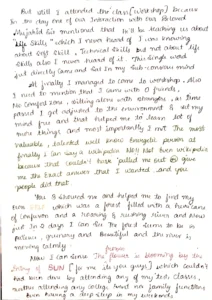 But still I attended the class (workshop) because
In the day one of our Interaction with our Beloved
Mujahid sir mentioned that it'll be teaching us about
"Life Skills" which I never heard of. I am knowing
about Soft Skill, Technical Skills but not about life
Skills also I never heard of it. This single word
directly came and in my Sub-conscious mind
finally I managed to come to workshop. Also
I used to mention that I came with 0 friends,
No Comfort zone, sitting alone with strangers, as time
passed I got adjusted to the environment & all my
mind free and that helped me to learn lot of
new things and most importantly I met The most
valuable, talented well know Energetic person at
finally I can say a wikipedia NO!! Not Even wikipedia
because that couldn't have pulled me out (or) gave
me the Exact answer that I wanted and you
people did that
You & me and helped me to find my
which was a forest filled with a hurricane
of confusion and a roaring & rushing rivers and now
just In 2 days I can the forest seems to be in
pattern, greenery and Beautiful and the river is
moving calmly.
Now I can sense The person is becoming by the
of (for me its you guys) which couldn't
had been done by attending any of my tech classes,
neither attending any college and no family functions
having a deep sleep in my weekends.